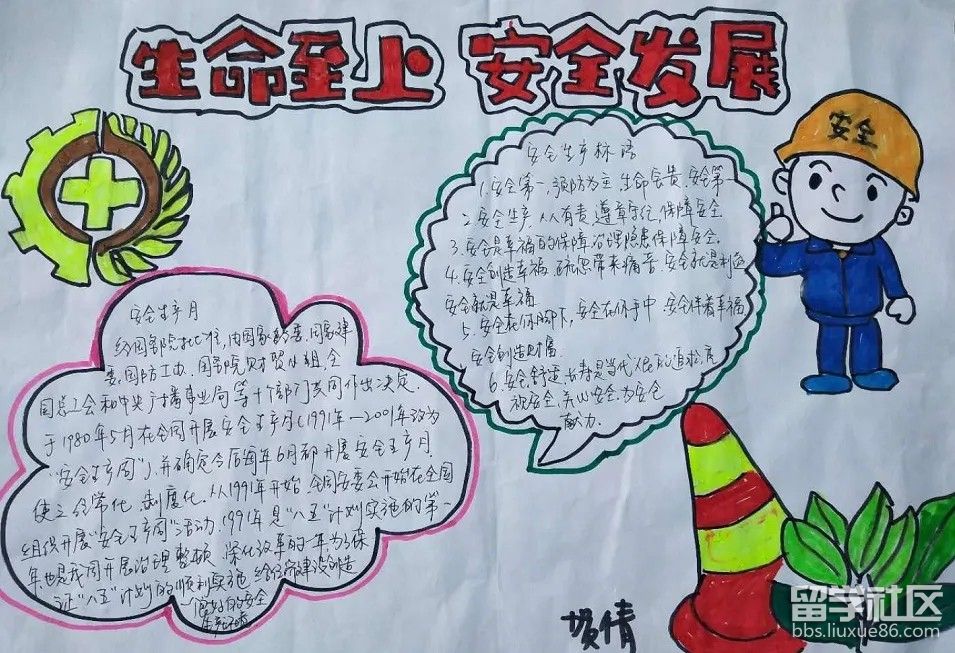 生命至上 安全发展
安全
安全生产标语
1.安全第一,预防为主,生命宝贵,安全第一
2.安全生产,人人有责,遵章守纪,保障安全
3.安全是幸福的保障,治理隐患保障安全。
4.安全创造幸福,疏忽带来痛苦,安全就是利益
安全就是幸福
5.安全在你脚下,安全在你手中,安全伴着幸福
安全创造财富
6.安全、舒适、长寿是当代人民的追求,
视安全,关心安全,为安全
献力.
安全生产月
经国务院批准,由国家经委、国家建
委、国防工办、国务院财贸小组、全
国总工会和中央广播事业局等十个部门共同作出决定,
于1980年5月在全国开展安全生产月(1991年—2001年改为
“安全生产周”),并确定今后每年6月都开展安全生产月
使之经常化、制度化.从1991年开始,全国安委会开始在全国
组织开展“安全生产周”活动.1991年是“八五”计划实施的第一
年也是我国开展治理整顿、深化改革的一年为了保
证“八五”计划的顺利实施,给经济建设创造
良好的安全
生产环境
留学社区
bbs.liuxue86.com